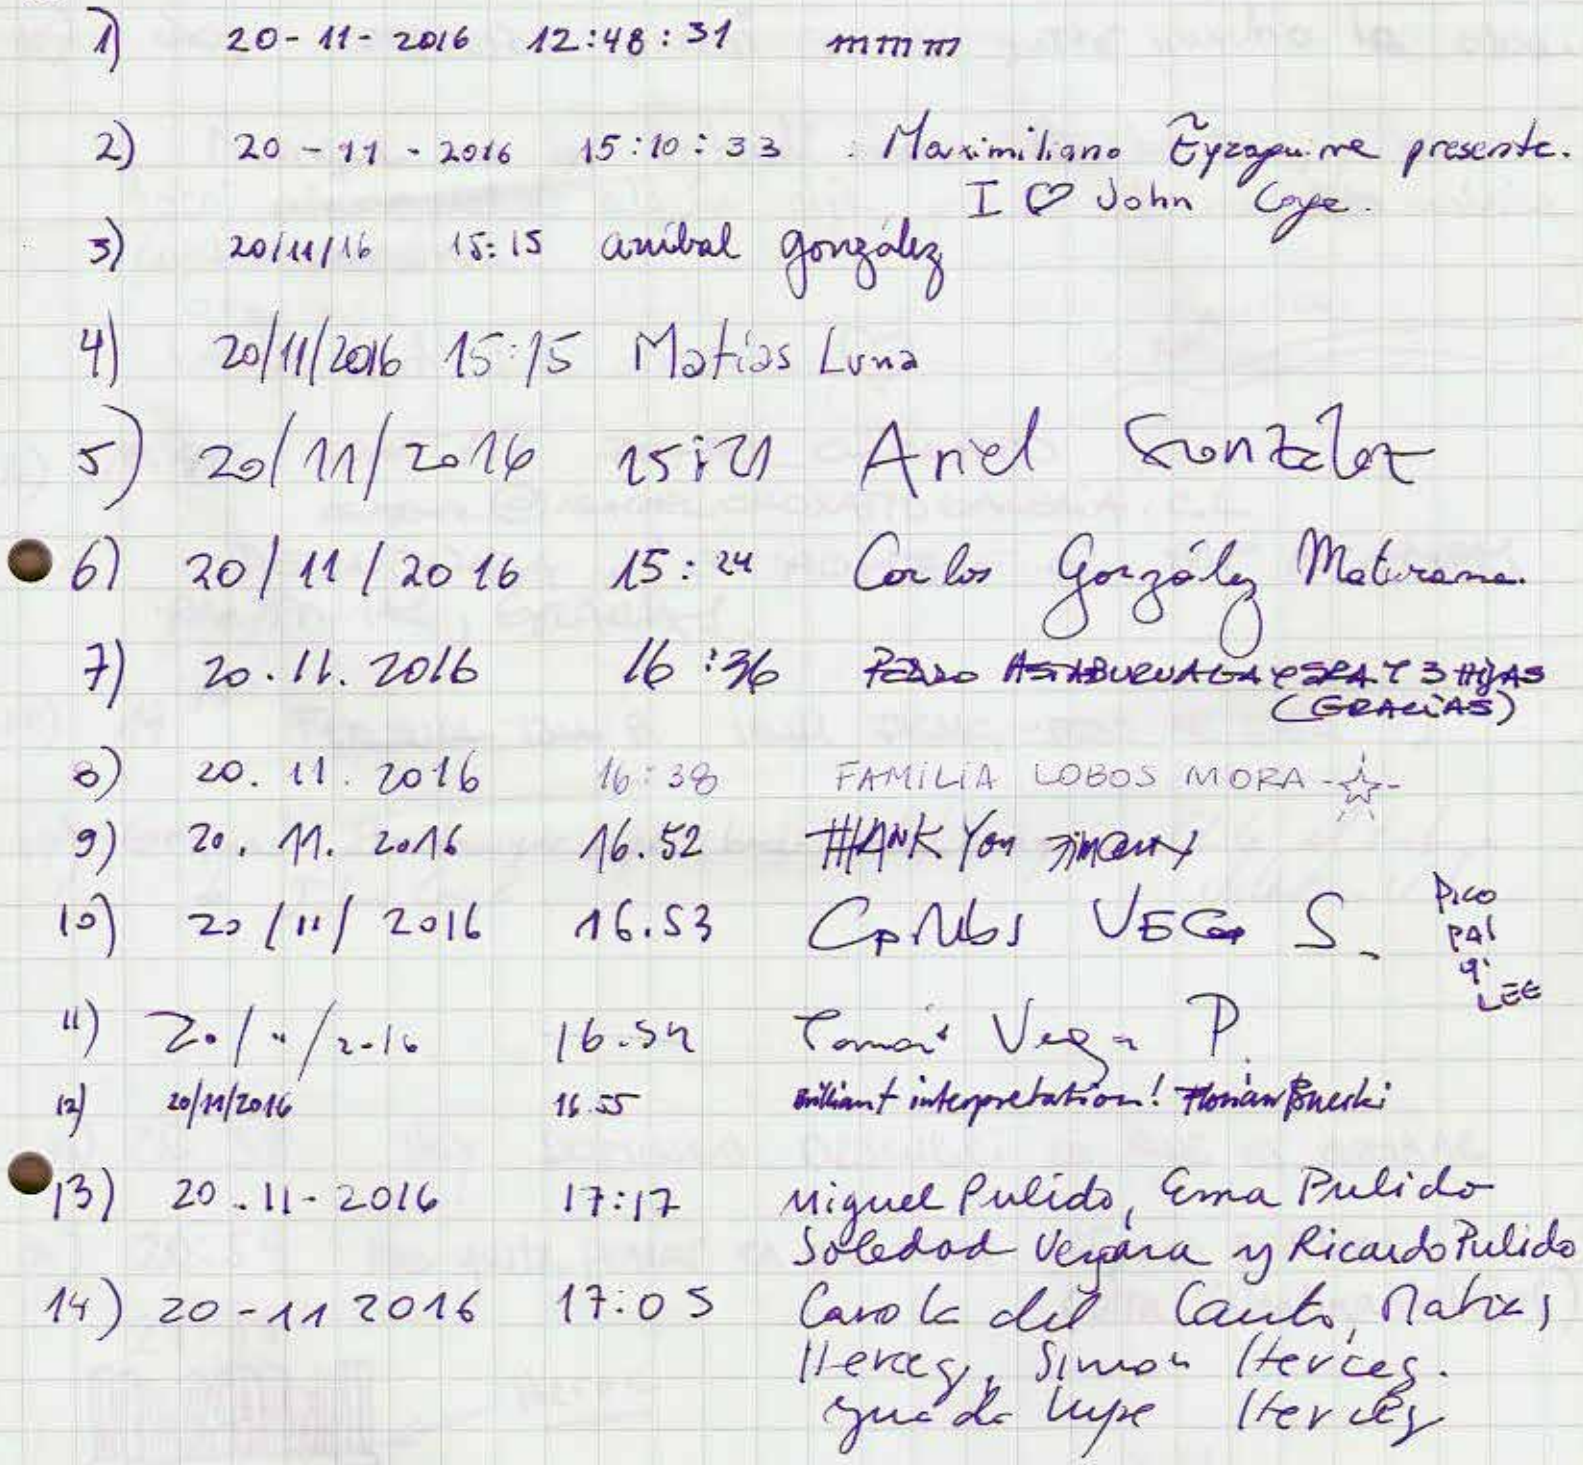 1) 20-11-2016 12:48:31 mmm
2) 20-11-2016 15:10:33 Maximiliano Eyzaguirre presente.
I ♡ John Cage.
3) 20/11/16 15:15 anibal gonzález
4) 20/11/2016 15:15 Matías Luna
5) 20/11/2016 15:21 Ariel González
6) 20/11/2016 15:24 Carlos González Maturana.
7) 20.11.2016 16:36 PEDRO ASTABURUAGA Y SRA Y 3 HIJAS
(GRACIAS)
8) 20.11.2016 16:38 FAMILIA LOBOS MORA -☆-
9) 20.11.2016 16.52 THANK You
10) 20/11/2016 16.53 CARLOS VEGA S.
PICO
PAL
q'
LEE
11) 20/11/2016 16.54 Tomás Vega P.
12) 20/11/2016 16.55 Brilliant interpretation! Florian
13) 20.11-2016 17:17 Miguel Pulido, Ema Pulido
Soledad Vergara y Ricardo Pulido
14) 20-11 2016 17:05 Carola del Canto, Matias
Herceg, Simon Herceg.
guadalupe Herceg